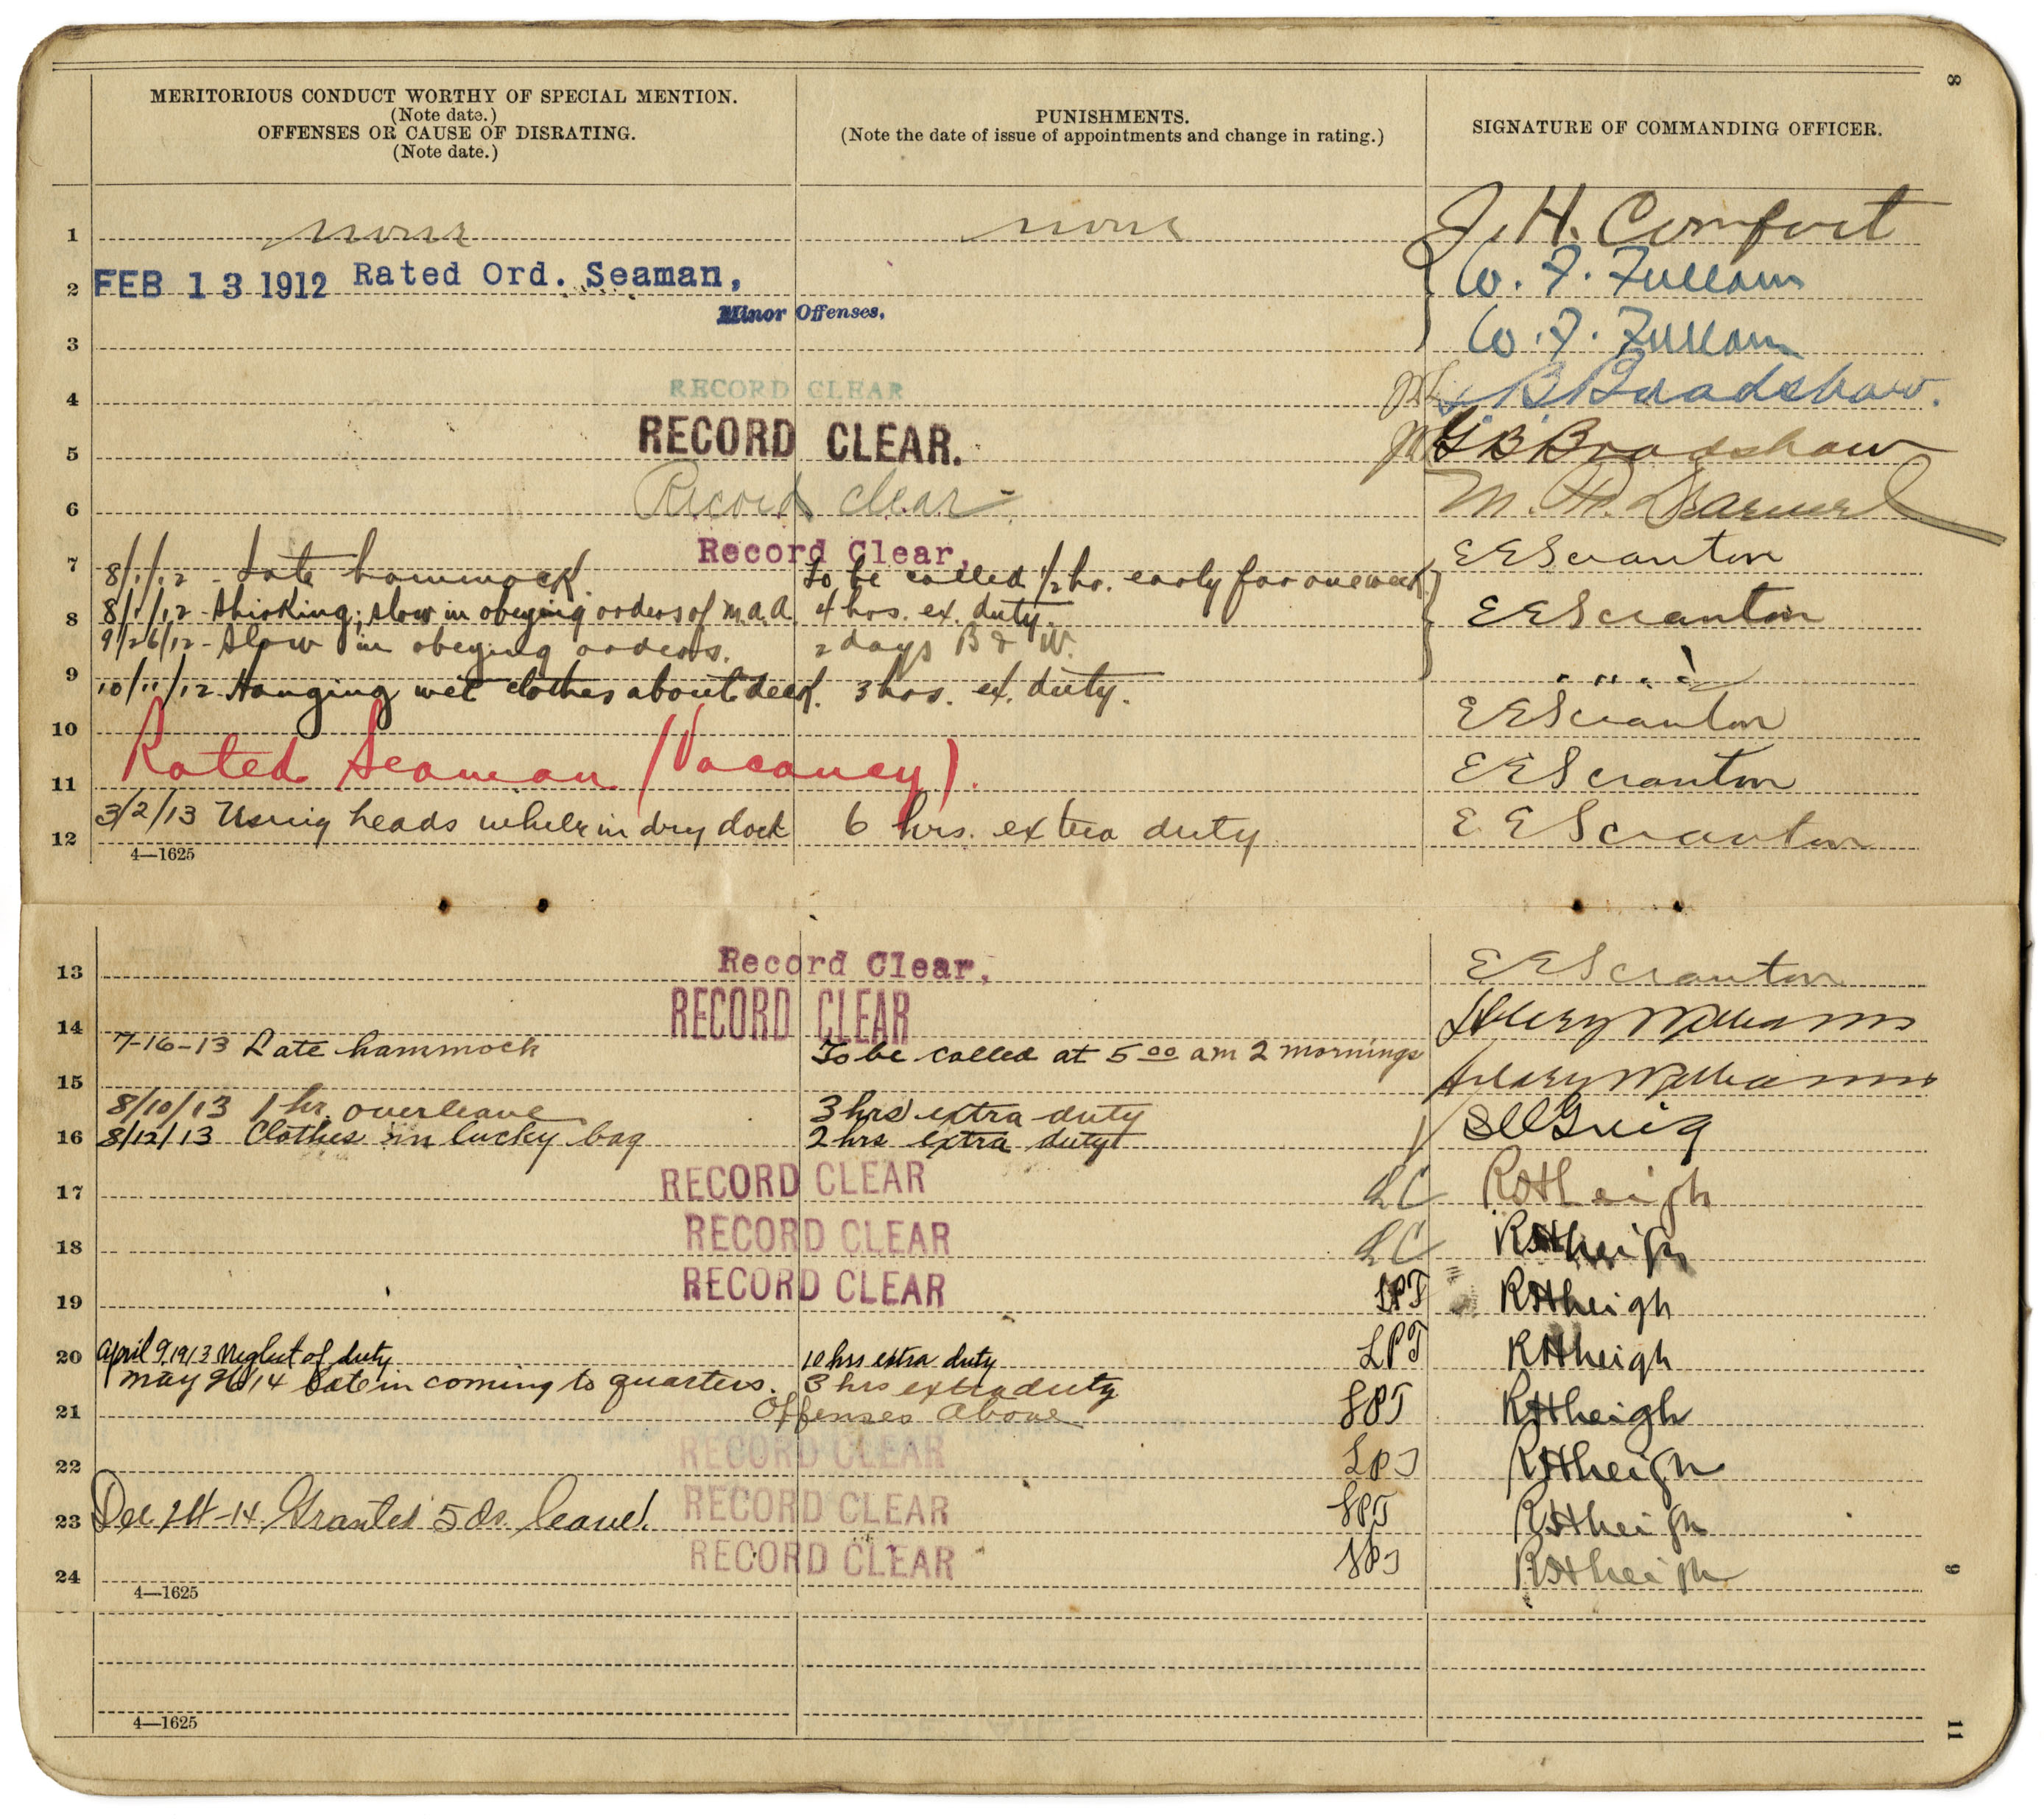 8
MERITORIOUS CONDUCT WORTHY OF SPECIAL MENTION.
(Note date.)
OFFENSES OR CAUSE OF DISRATING.
(Note date.)
PUNISHMENTS.
(Note the date of issue of appointments and change in rating.)
SIGNATURE OF COMMANDING OFFICER.
1 none none J. H. Comfort
2 FEB 13 1912 Rated Ord. Seaman, W. F. Fullam
Minor Offenses.
3 W. F. Fullam
4 RECORD CLEAR G B Bradshaw.
5 RECORD CLEAR. G B Bradshaw
6 Record clear M. H.
7 Record Clear, E E Scranton
8/1/12 - Late hammock. To be called 1/2 hr. early for one week.
8 8/1/12 - Shirking; slow in obeying orders of m.a.a. 4 hrs. ex. duty. E E Scranton
9/26/12 - Slow in obeying orders. 2 days B & W.
9 " " " "
10/11/12 Hanging wet clothes about deck. 3 hrs. ex. duty.
10 E E Scranton
11 Rated Seaman (Vacancy). E E Scranton
12 3/2/13 Using heads while in dry dock 6 hrs. extra duty E E Scranton
4—1625
13 Record Clear, E E Scranton
14 RECORD CLEAR Hilary Williams
7-16-13 Late hammock To be called at 5 00 am 2 mornings
15 Hilary Williams
8/10/13 1 hr. overleave 3 hrs extra duty
16 8/12/13 Clothes in lucky bag 2 hrs extra duty
17 RECORD CLEAR LC R H Leigh
18 RECORD CLEAR LC R H Leigh
19 RECORD CLEAR LPT R H Leigh
20 April 9, 1913 Neglect of duty 10 hrs extra duty LPT R H Leigh
May 26 14 Late in coming to quarters. 3 hrs extra duty
21 Offenses Above LPT R H Leigh
22 RECORD CLEAR LPT R H Leigh
23 Dec 24-14 Granted 5 ds. leave. RECORD CLEAR LPT R H Leigh
24 RECORD CLEAR LPT R H Leigh
4—1625
9
4—1625
11